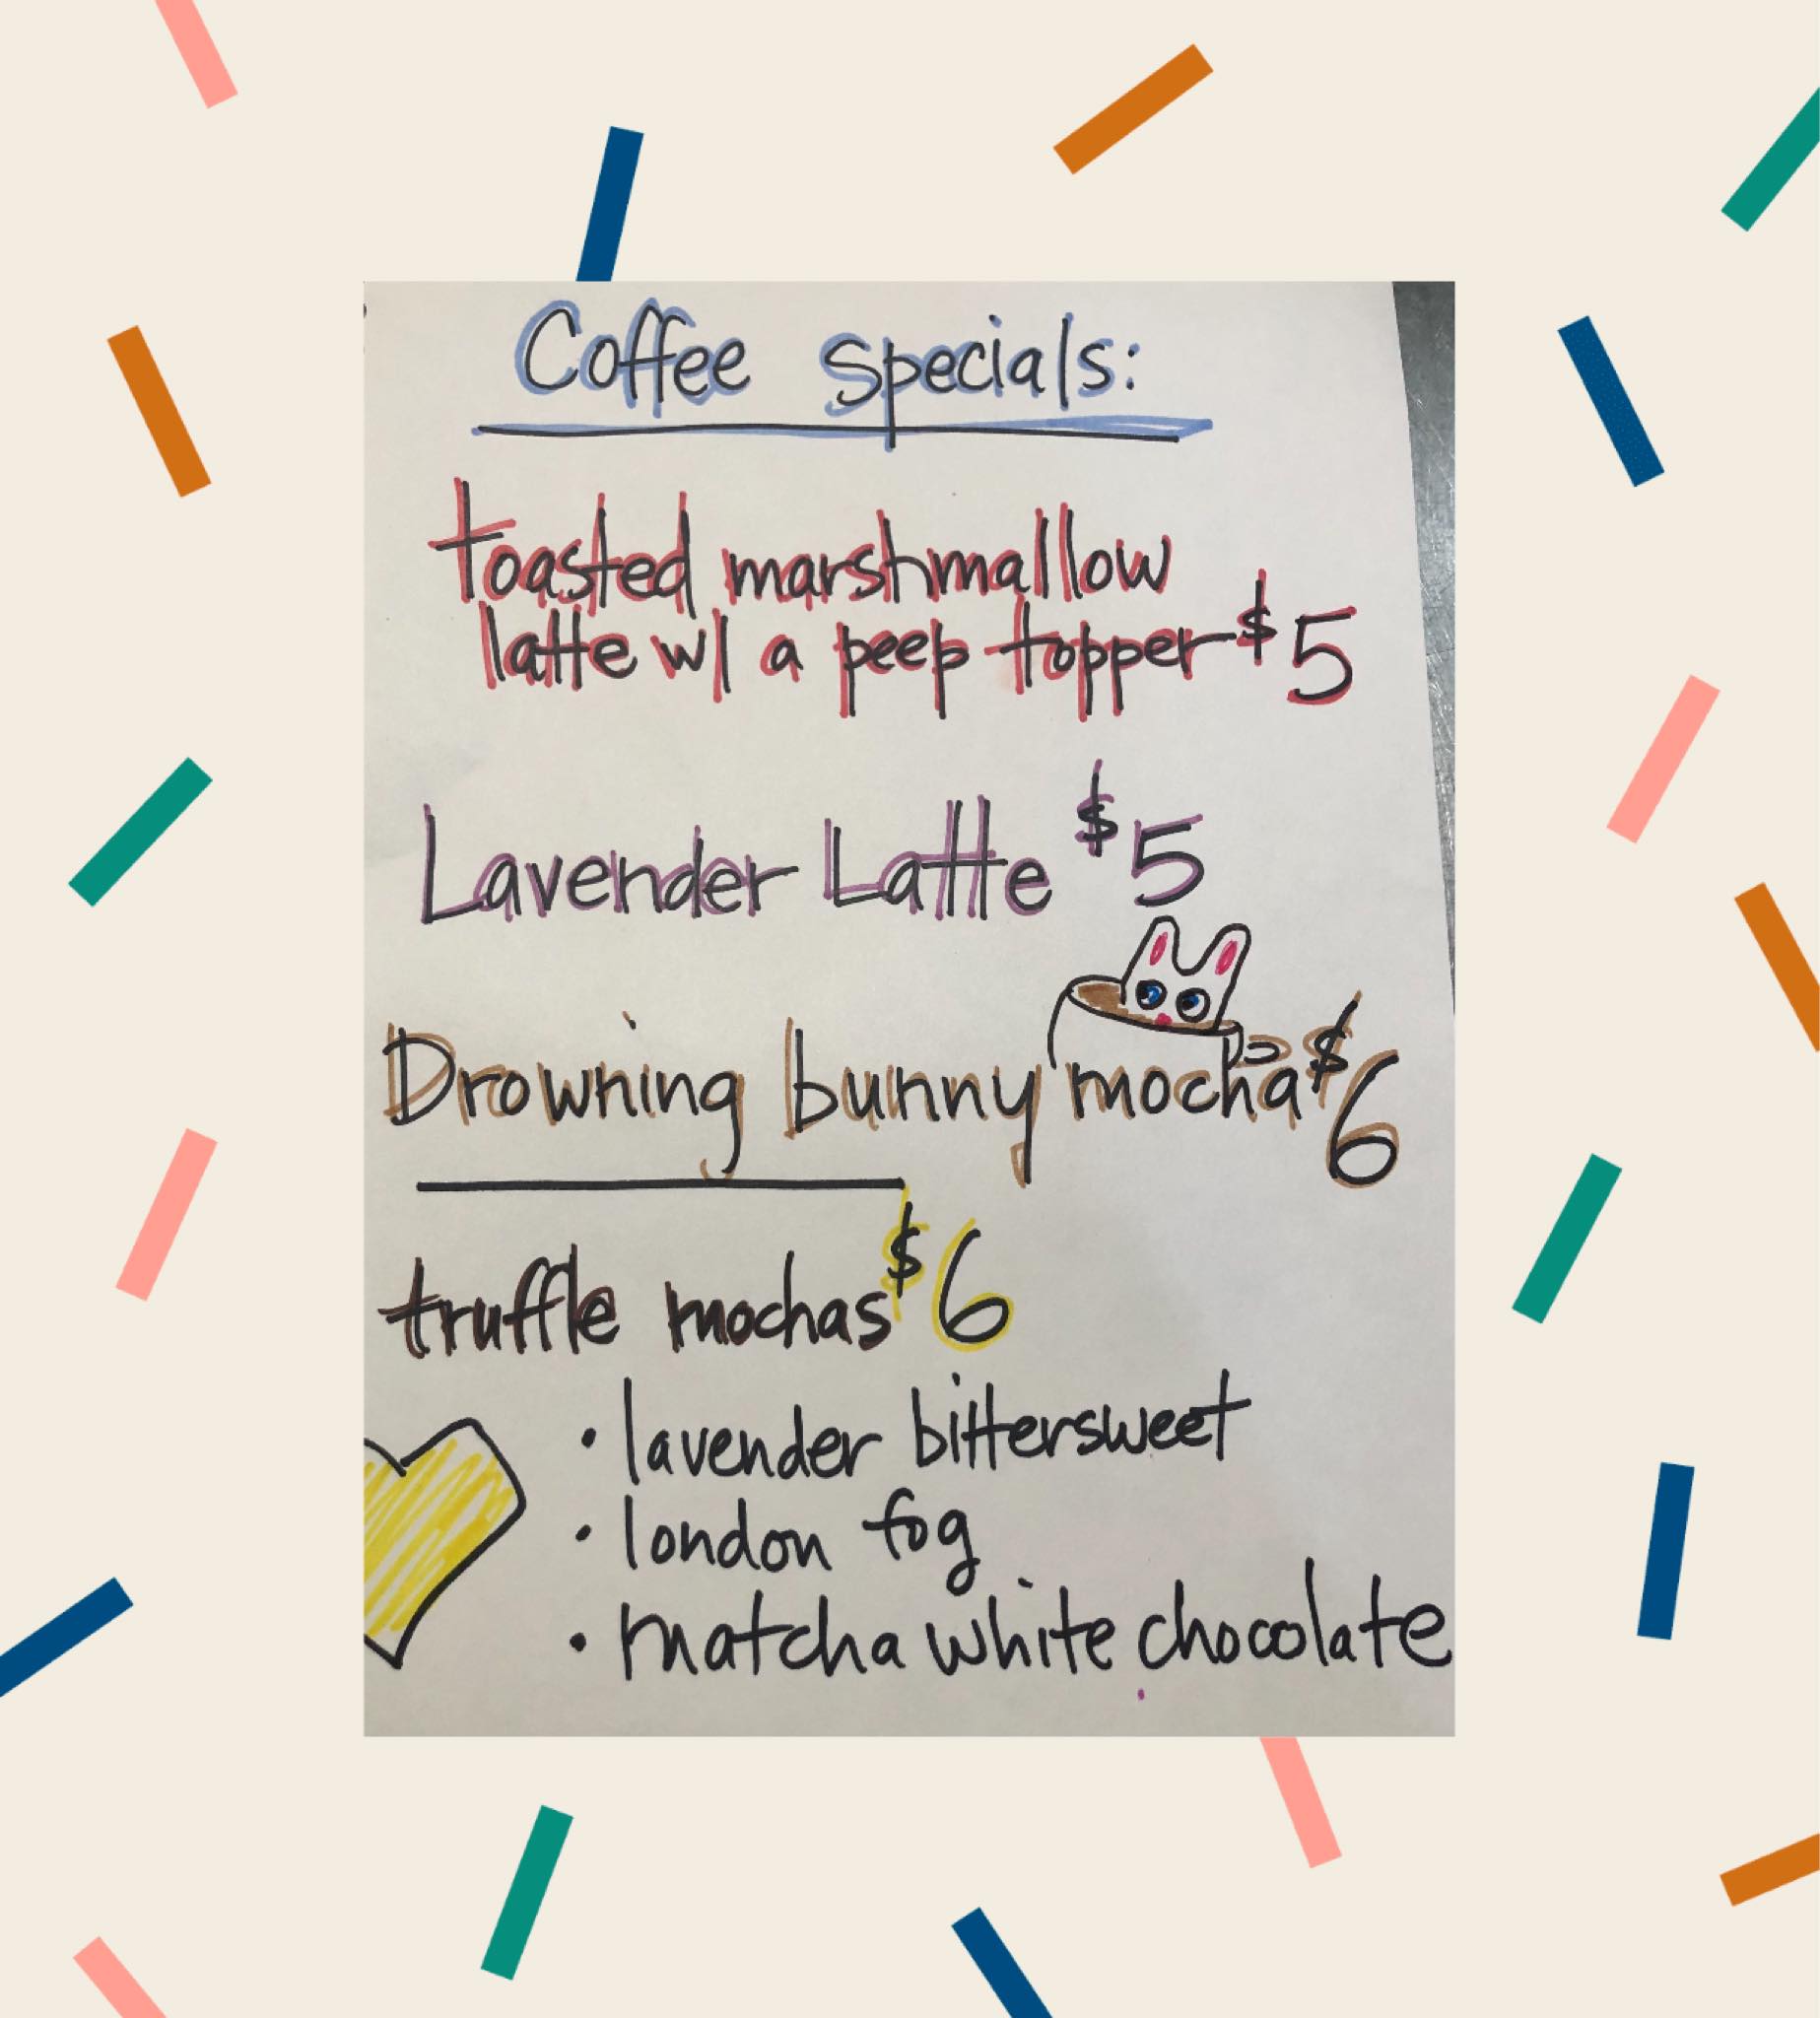 Coffee Specials:
toasted marshmallow
latte w/ a peep topper $5
Lavender Latte $5
Drowning bunny mocha $6
truffle mochas $6
• lavender bittersweet
• london fog
• matcha white chocolate